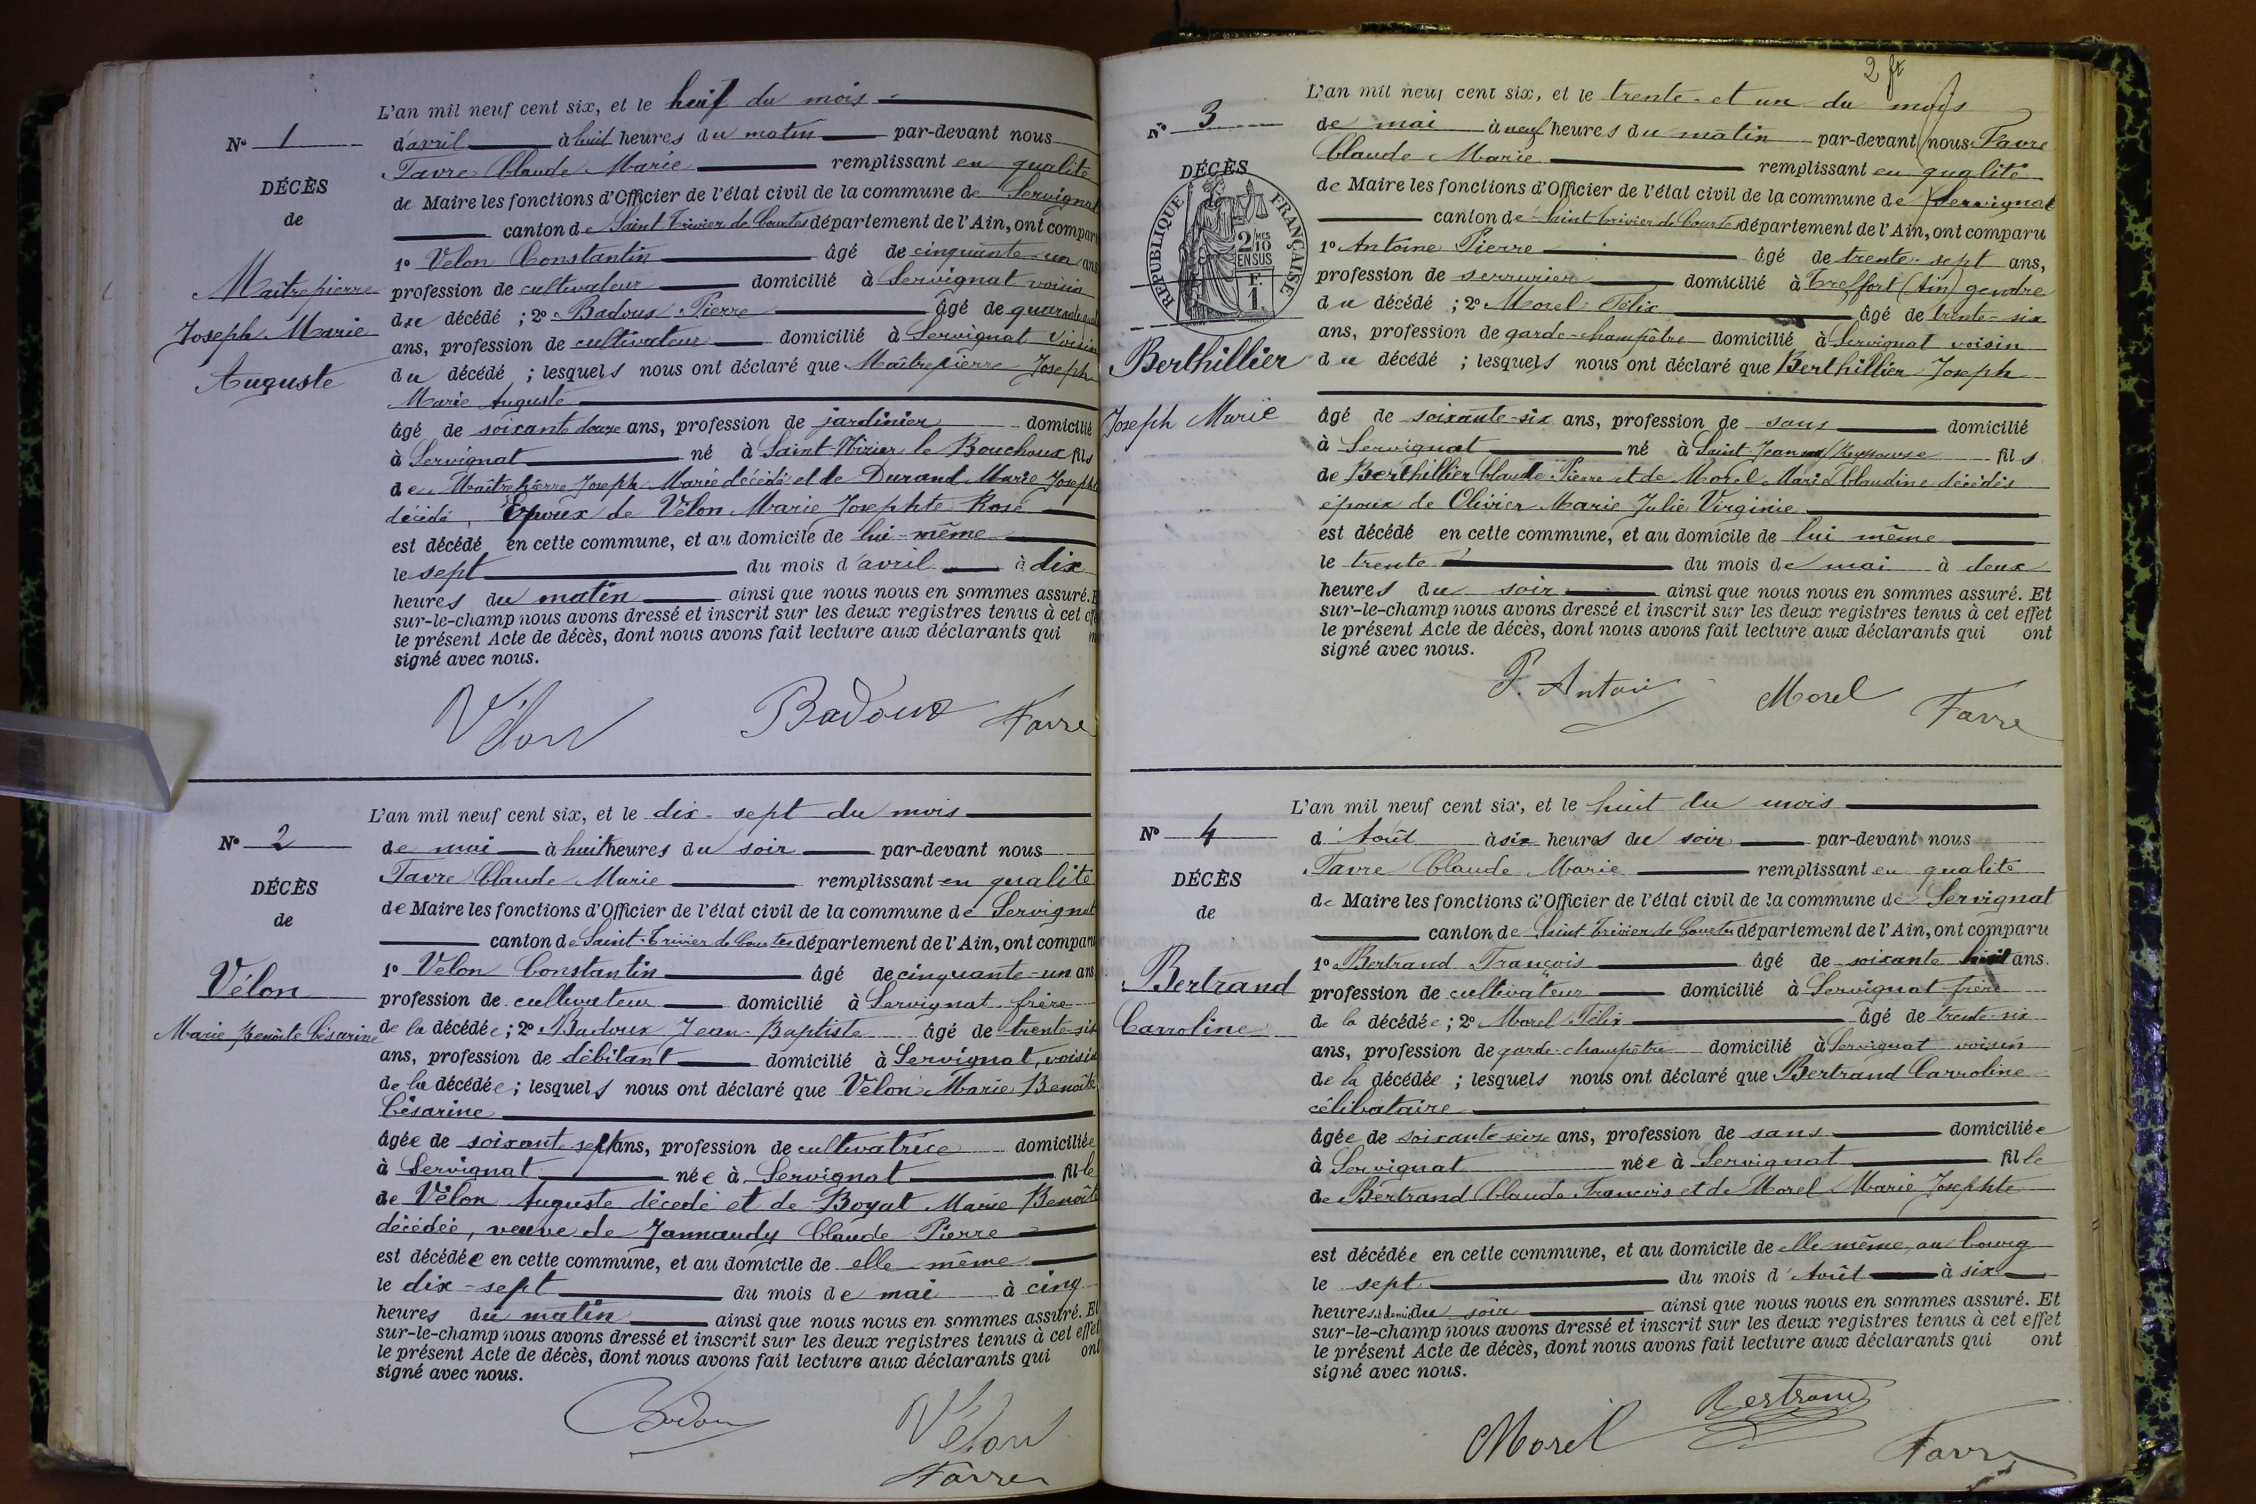 L'an mil neuf cent six, et le huit du mois
N° 1
d'avril à huit heures du matin par-devant nous
Favre Claude Marie remplissant en qualité
DÉCÈS
de Maire les fonctions d'Officier de l'état civil de la commune de Servignat
de
canton de Saint Trivier de Courtes département de l'Ain, ont comparu
1° Vélon Constantin âgé de cinquante-un ans
Maitrepierre
profession de cultivateur domicilié à Servignat voisin
du décédé ; 2° Badoux Pierre âgé de quarante
Joseph Marie
ans, profession de cultivateur domicilié à Servignat voisin
Auguste
du décédé ; lesquels nous ont déclaré que Maîtrepierre Joseph
Marie Auguste
âgé de soixante douze ans, profession de jardinier domicilié
à Servignat né à Saint Nizier le Bouchoux fils
de Maîtrepierre Joseph Marie décédé et de Durand Marie Josephte
décédé, Epoux de Vélon Marie Josephte Rose
est décédé en cette commune, et au domicile de lui-même
le sept du mois d'avril à dix
heures du matin ainsi que nous nous en sommes assuré. E
sur-le-champ nous avons dressé et inscrit sur les deux registres tenus à cet effe
le présent Acte de décès, dont nous avons fait lecture aux déclarants qui
signé avec nous.
Vélon Badoux Favre
L'an mil neuf cent six, et le dix-sept du mois
N° 2
de mai à huit heures du soir par-devant nous
Favre Claude Marie remplissant en qualité
DÉCÈS
de Maire les fonctions d'Officier de l'état civil de la commune de Servignat
de
canton de Saint-Trivier de Courtes département de l'Ain, ont comparu
1° Velon Constantin âgé de cinquante-un ans
Vélon
profession de cultivateur domicilié à Servignat frère
Marie Benoîte Césarine
de la décédée ; 2° Badoux Jean-Baptiste âgé de trente-six
ans, profession de débitant domicilié à Servignat, voisin
de la décédée ; lesquels nous ont déclaré que Vélon Marie Benoîte
Césarine
âgée de soixante sept ans, profession de cultivatrice domiciliée
à Servignat née à Servignat fille
de Vélon Auguste décédé et de Boyat Marie Benoîte
décédée, veuve de Jannaudy Claude Pierre
est décédée en cette commune, et au domicile de elle même
le dix-sept du mois de mai à cinq
heures du matin ainsi que nous nous en sommes assuré. Et
sur-le-champ nous avons dressé et inscrit sur les deux registres tenus à cet effet
le présent Acte de décès, dont nous avons fait lecture aux déclarants qui ont
signé avec nous.
Badoux Vélon
Favre
2 ft
L'an mil neuf cent six, et le trente-et un du mois
N° 3
de mai à neuf heures du matin par-devant nous Favre
Claude Marie remplissant en qualité
DÉCÈS
de Maire les fonctions d'Officier de l'état civil de la commune de Servignat
RÉPUBLIQUE FRANÇAISE
2/10 MES EN SUS
F. 1
canton de Saint trivier de Courtes département de l'Ain, ont comparu
1° Antoine Pierre âgé de trente-sept ans,
profession de serrurier domicilié à Treffort (Ain) gendre
du décédé ; 2° Morel Félix âgé de trente-six
ans, profession de garde-champêtre domicilié à Servignat voisin
Berthillier
du décédé ; lesquels nous ont déclaré que Berthillier Joseph
Joseph Marie
âgé de soixante-six ans, profession de sans domicilié
à Servignat né à Saint Jean sur Reyssouze fils
de Berthillier Claude Pierre et de Morel Marie Claudine décédés
époux de Olivier Marie Julie Virginie
est décédé en cette commune, et au domicile de lui même
le trente du mois de mai à deux
heures du soir ainsi que nous nous en sommes assuré. Et
sur-le-champ nous avons dressé et inscrit sur les deux registres tenus à cet effet
le présent Acte de décès, dont nous avons fait lecture aux déclarants qui ont
signé avec nous.
P. Antoine Morel Favre
L'an mil neuf cent six, et le huit du mois
N° 4
d'Août à six heures du soir par-devant nous
Favre Claude Marie remplissant en qualité
DÉCÈS
de Maire les fonctions d'Officier de l'état civil de la commune de Servignat
de
canton de Saint Trivier de Courtes département de l'Ain, ont comparu
1° Bertrand François âgé de soixante huit ans.
Bertrand
profession de cultivateur domicilié à Servignat frère
Carroline
de la décédée ; 2° Morel Félix âgé de trente-six
ans, profession de garde-champêtre domicilié à Servignat voisin
de la décédée ; lesquels nous ont déclaré que Bertrand Carroline
célibataire
âgée de soixante-seize ans, profession de sans domiciliée
à Servignat née à Servignat fille
de Bertrand Claude François et de Morel Marie Josephte
est décédée en cette commune, et au domicile de elle même au bourg
le sept du mois d'Août à six
heures et demi du soir ainsi que nous nous en sommes assuré. Et
sur-le-champ nous avons dressé et inscrit sur les deux registres tenus à cet effet
le présent Acte de décès, dont nous avons fait lecture aux déclarants qui ont
signé avec nous.
Morel Bertrand Favre